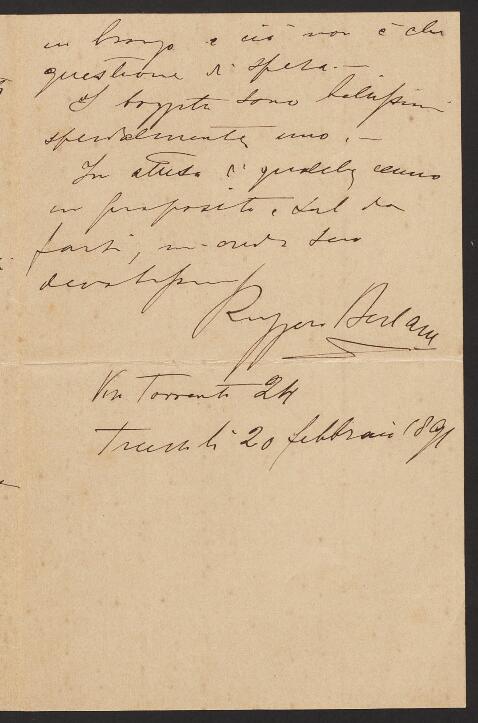 in bronzo e ciò non è che
questione di spesa.—
I bozzetti sono bellissimi
specialmente uno.—
In attesa di qualche cenno
in proposito, e sul da
farsi, mi creda suo
devotissimo
Ruggero Berlam
Via Torrente 24
Trieste li 20 febbraio 1891